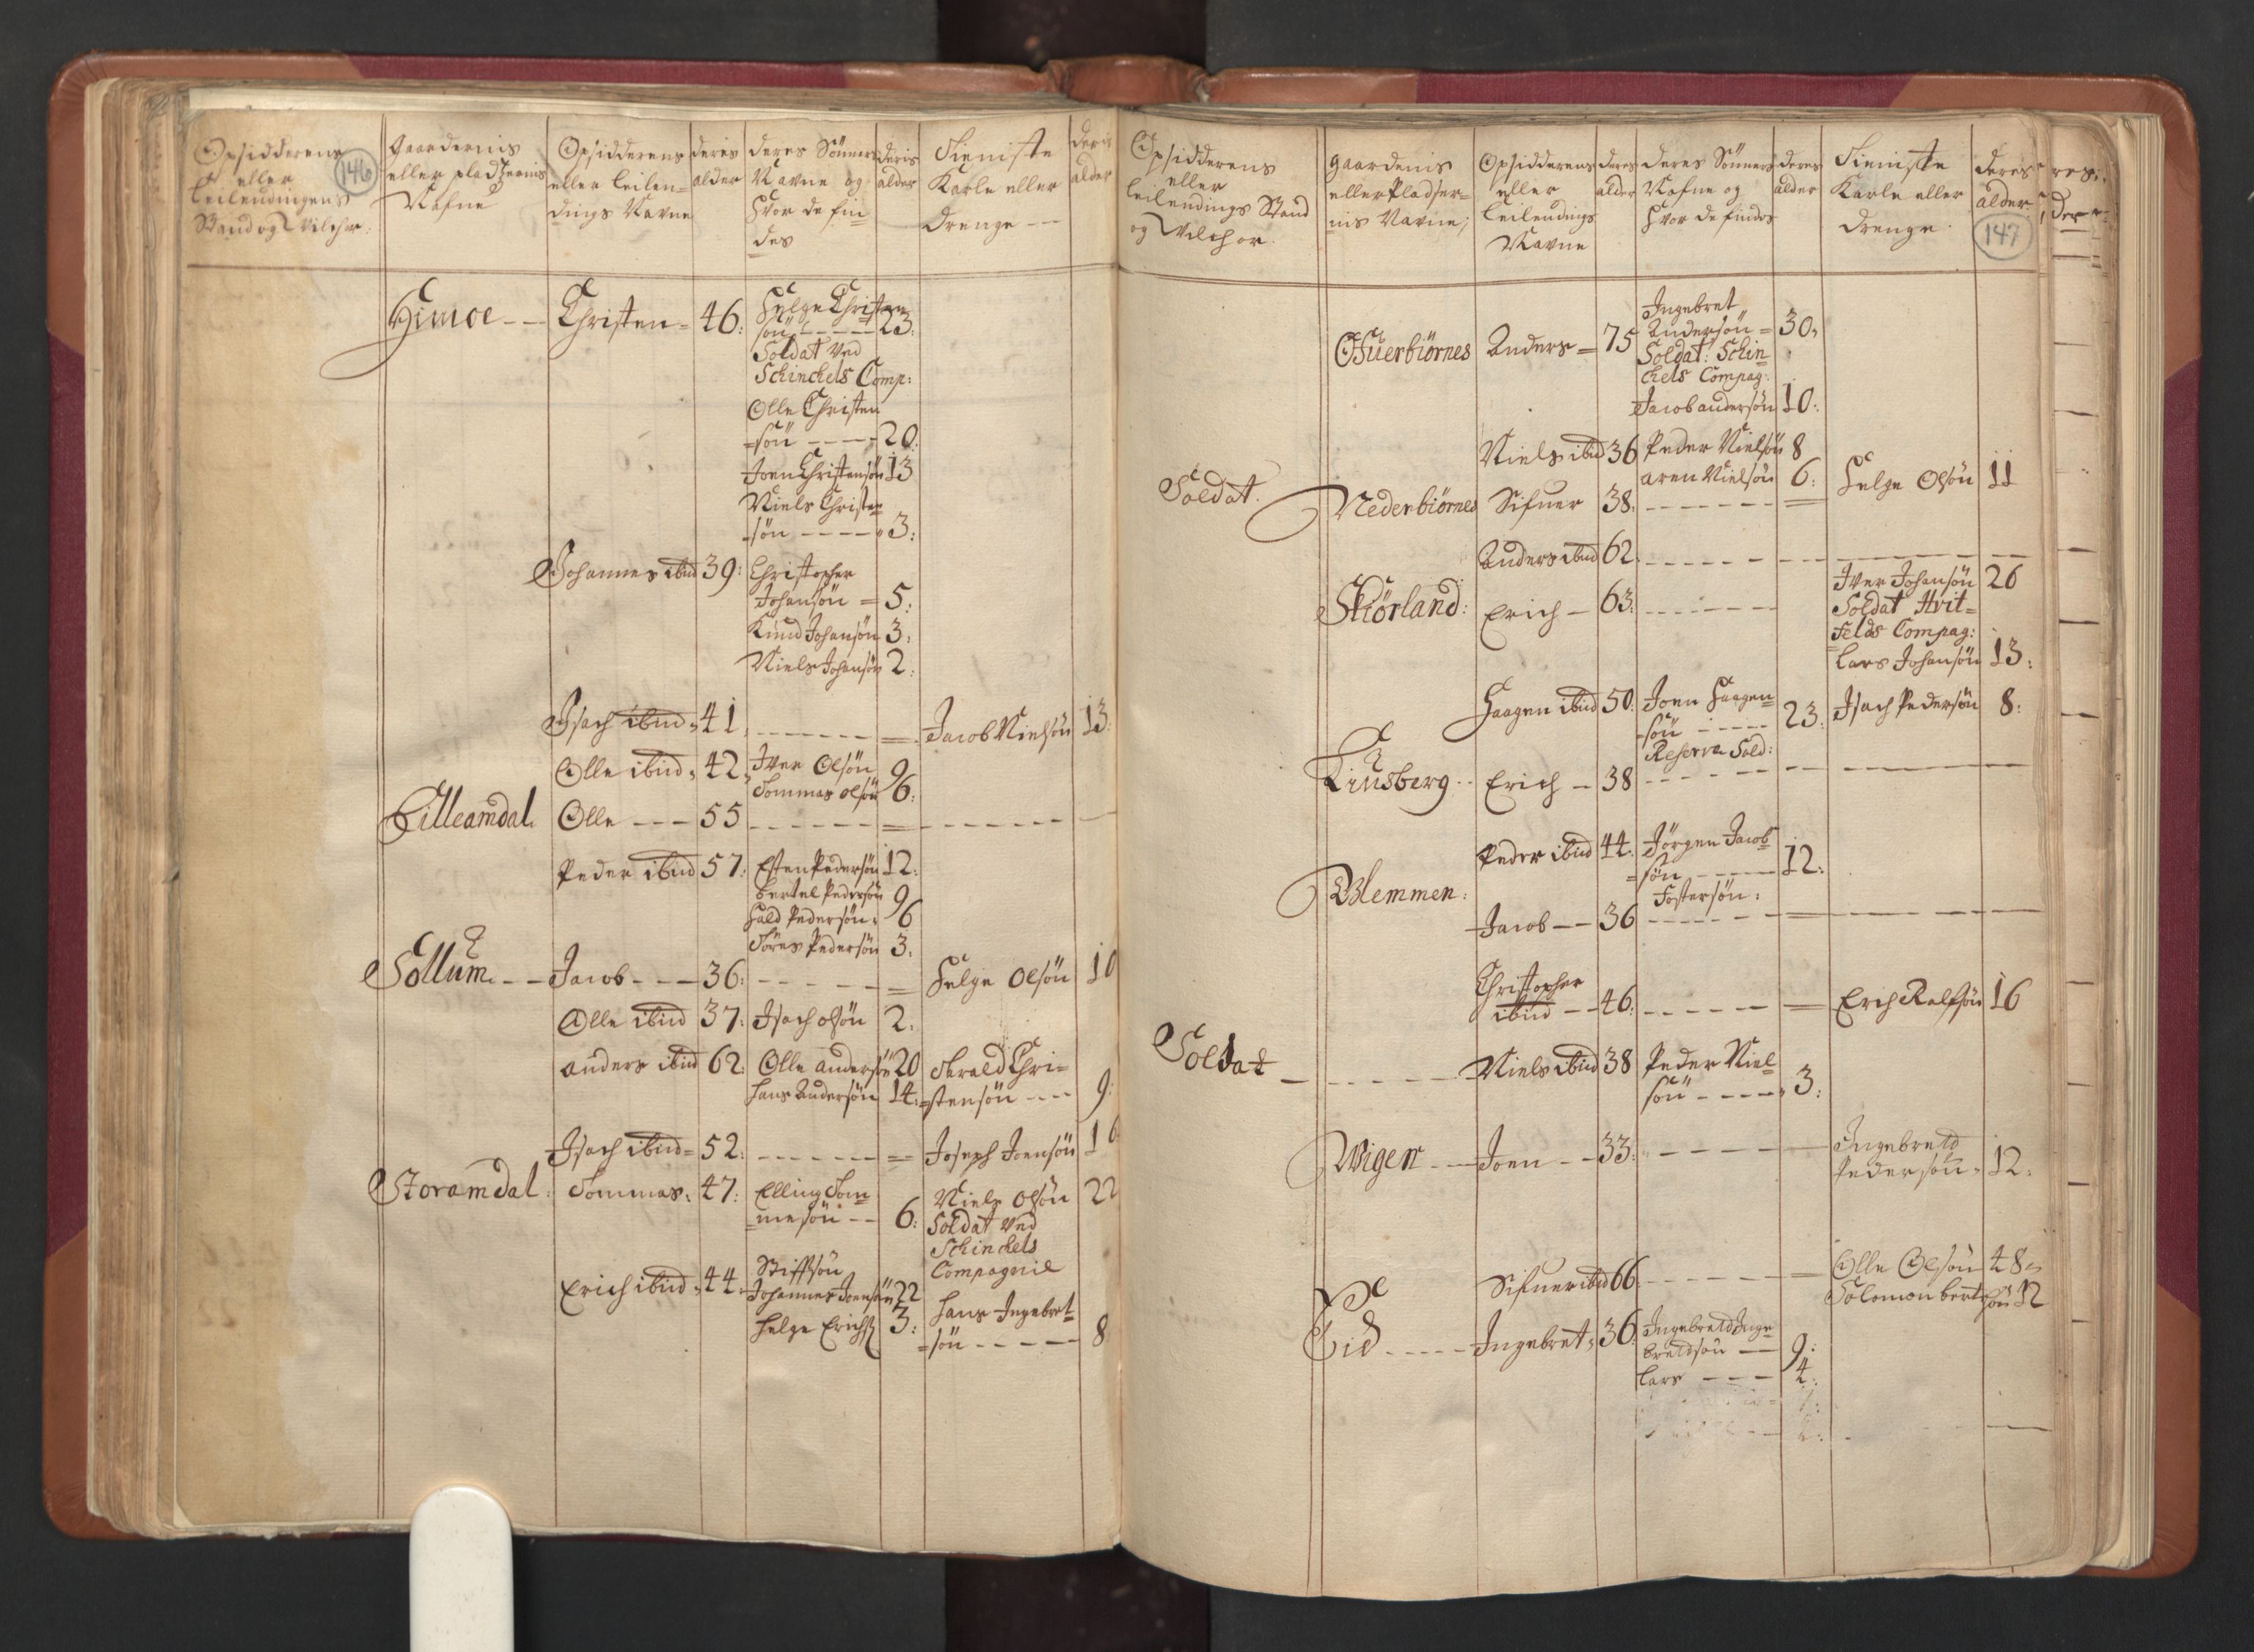 Opsidderens
eller
Leilendingens
Stand og Vilchor:
146
Gaardernis
eller pladzernis
Nafne
Opsidderens
eller Leilen=
dings Navne
deres
alder
deres Sønners
Navne og
Hvor de fin
des
deris
alder
Tieniste
Karle eller
Drenge --
deris
alder
Gimoe -- Christen = 46:
Helge Christen
søn ---- 23:
Soldat Ved
Schinckels Comp:
Olle Christen
=søn ---- 20:
Joen Christensøn 13
Niels Christen
=søn ---- 3:
Johannes ibid 39: Christopher
Johansøn = 5:
Knud Johansøn 3:
Niels Johansøn 2:
Isach ibid = 41: ------ = Jacob Nielsøn 13
Olle ibid = 42, Iver Olsøn 9
Tommas olsøn 6:
Lilleamdal. Olle --- 55 ------ = ------ -
Peder ibid 57: Esten Pedersøn 12:
Bertel Pedersøn 9
Hald Pedersøn = 6
Søren Pedersøn 3:
Sollum -- Jacob --- 36: ----- = Helge Olsøn 10
Olle ibid 37: Isach olsøn 2.
anders ibid 62: Olle andersøn 20 Harald Chri=
Hans Andersøn 14: =stensøn --- 9:
Isach ibid = 52: ------ = Joseph Joensøn 16
Storamdal: Tommas: 47: Elling Tom=
=mesøn -- 6:
Niels Olsøn 22
Soldat Ved
Schinckels
Compagnie
Erich ibid = 44. Stiffsøn
Johannes Joensøn 22
Helge Erichs 3:
Hans Ingebret=
=søn ----- 8
Opsidderens
eller
Leilendings Stand
og Vilchor.
gaardenis
eller Pladser=
nis Navne;
Opsidderens
eller
Leilendings
Navne
deres
alder
deres Sønners
Nafne og
Hvor de findes
deres
alder
Tieniste
Karle eller
drenge.
deres
alder.
147
Ofuerbiørnes Anders = 75
Ingebret
Andersøn = 30,
Soldat: Schin=
ckels Compag:
Jacob andersøn 10:
Niels ibid 36 Peder Nielsøn 8
aren Nielsøn 6:
Soldat. Nederbiørnes Sifuer 38. ------ = Helge Olsøn 11
Anders ibid 62. ------ -- ------ --
Skiørland: Erich - 63: ------
Iver Johansøn 26
Soldat Hvit=
felds Compag:
Lars Johansøn 13:
Haagen ibid 50. Joen Haagen=
=søn ---- 23:
Reserve Sold:
Isach Pedersøn 8:
Kiusberg.. Erich - 38 ------ -- ------ --
Peder ibid 44: Jørgen Jacob=
=søn ---- 12:
Fostersøn:
Blemmen: Jacob -- 36 ------ = ------ --
Christopher
ibid -- 46: ------ = Erich Rolfsøn 16
Soldat ------ Niels ibid 38 Peder Niel=
søn ---- 3:
Wigen --- Joen -- 33: ------ -- Ingebreld
Pedersøn = 12:
Sifuer ibid 66 ------ = Olle Olsøn 48
Solomon bertsøn 12
Eid ----- Ingebret: 36 Ingebreld Inge=
breldsøn -- 9:
Lars --- 4: